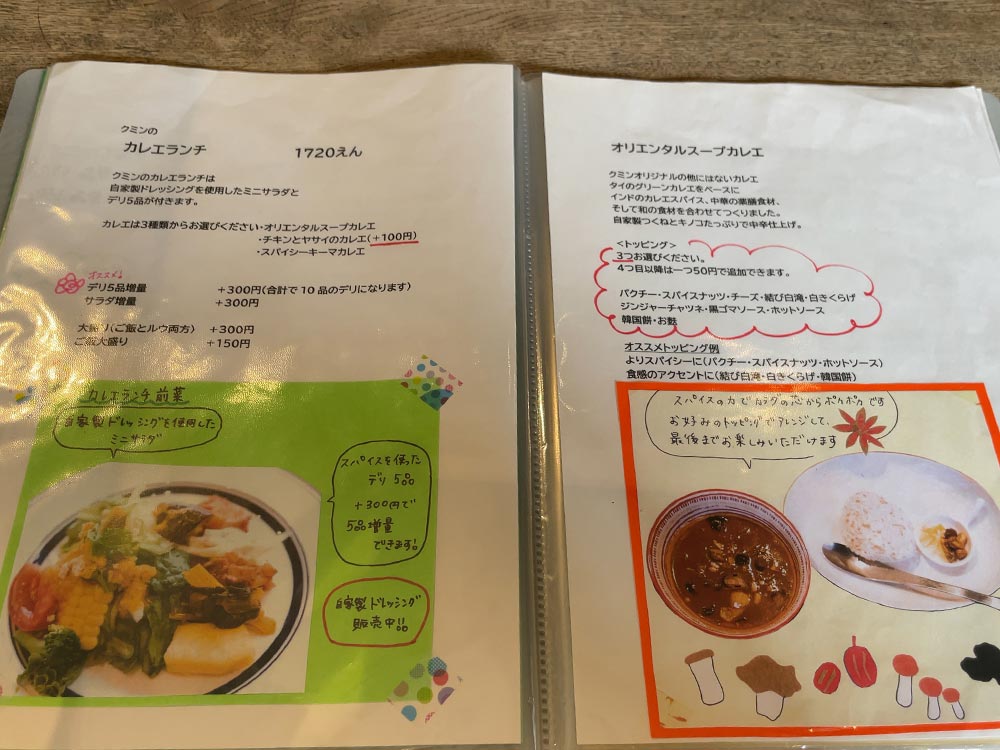 クミンの
カレエランチ 1720えん
クミンのカレエランチは
自家製ドレッシングを使用したミニサラダと
デリ5品が付きます。
カレエは3種類からお選びください・オリエンタルスープカレエ
・チキンとヤサイのカレエ(+100円)
・スパイシーキーマカレエ
オススメ!
デリ5品増量 +300円(合計で10品のデリになります)
サラダ増量 +300円
大盛り(ご飯とルウ両方) +300円
ご飯大盛り +150円
カレエランチ前菜
自家製ドレッシングを使用した
ミニサラダ
スパイスを使った
デリ5品
+300円で
5品増量
できます!
自家製ドレッシング
販売中!!
オリエンタルスープカレエ
クミンオリジナルの他にはないカレエ
タイのグリーンカレエをベースに
インドのカレエスパイス、中華の薬膳食材、
そして和の食材を合わせてつくりました。
自家製つくねとキノコたっぷりで中辛仕上げ。
<トッピング>
3つお選びください。
4つ目以降は一つ50円で追加できます。
パクチー・スパイスナッツ・チーズ・結び白滝・白きくらげ
ジンジャーチャツネ・黒ゴマソース・ホットソース
韓国餅・お麩
オススメトッピング例
よりスパイシーに(パクチー・スパイスナッツ・ホットソース)
食感のアクセントに(結び白滝・白きくらげ・韓国餅)
スパイスの力でカラダの芯からポカポカです
お好みのトッピングでアレンジして、
最後までお楽しみいただけます